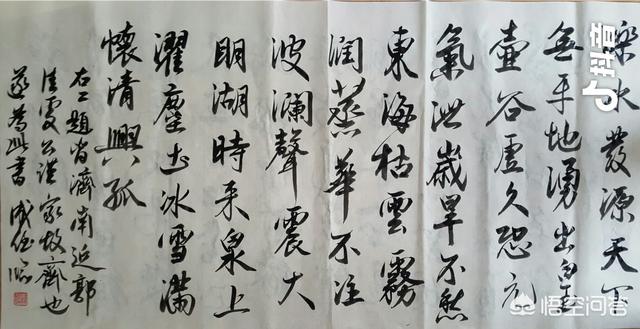 濼水發源天下
無平地湧出白玉
壺谷虛久恐元
氣泄歲旱不愁
東海枯雲霧
潤蒸華不注
波瀾聲震大
明湖時来泉上
濯塵土冰雪滿
懷清興孤
右二題皆濟南近郭
佳處公謹家故齊也
遂為此書
抖音
悟空问答